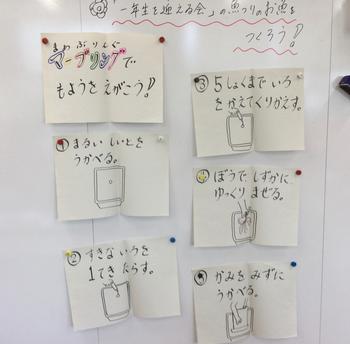 「一年生を迎える会」の魚つりのお魚を
つくろう!
まあぶりんぐ
マーブリングで、
もようをえがこう!
① まるい しいとを
うかべる。
② すきな いろを
1てき たらす。
③ 5しょくまで いろ
をかえてくりかえす。
④ ぼうで しずかに
ゆっくり まぜる。
⑤ かみを みずに
うかべる。